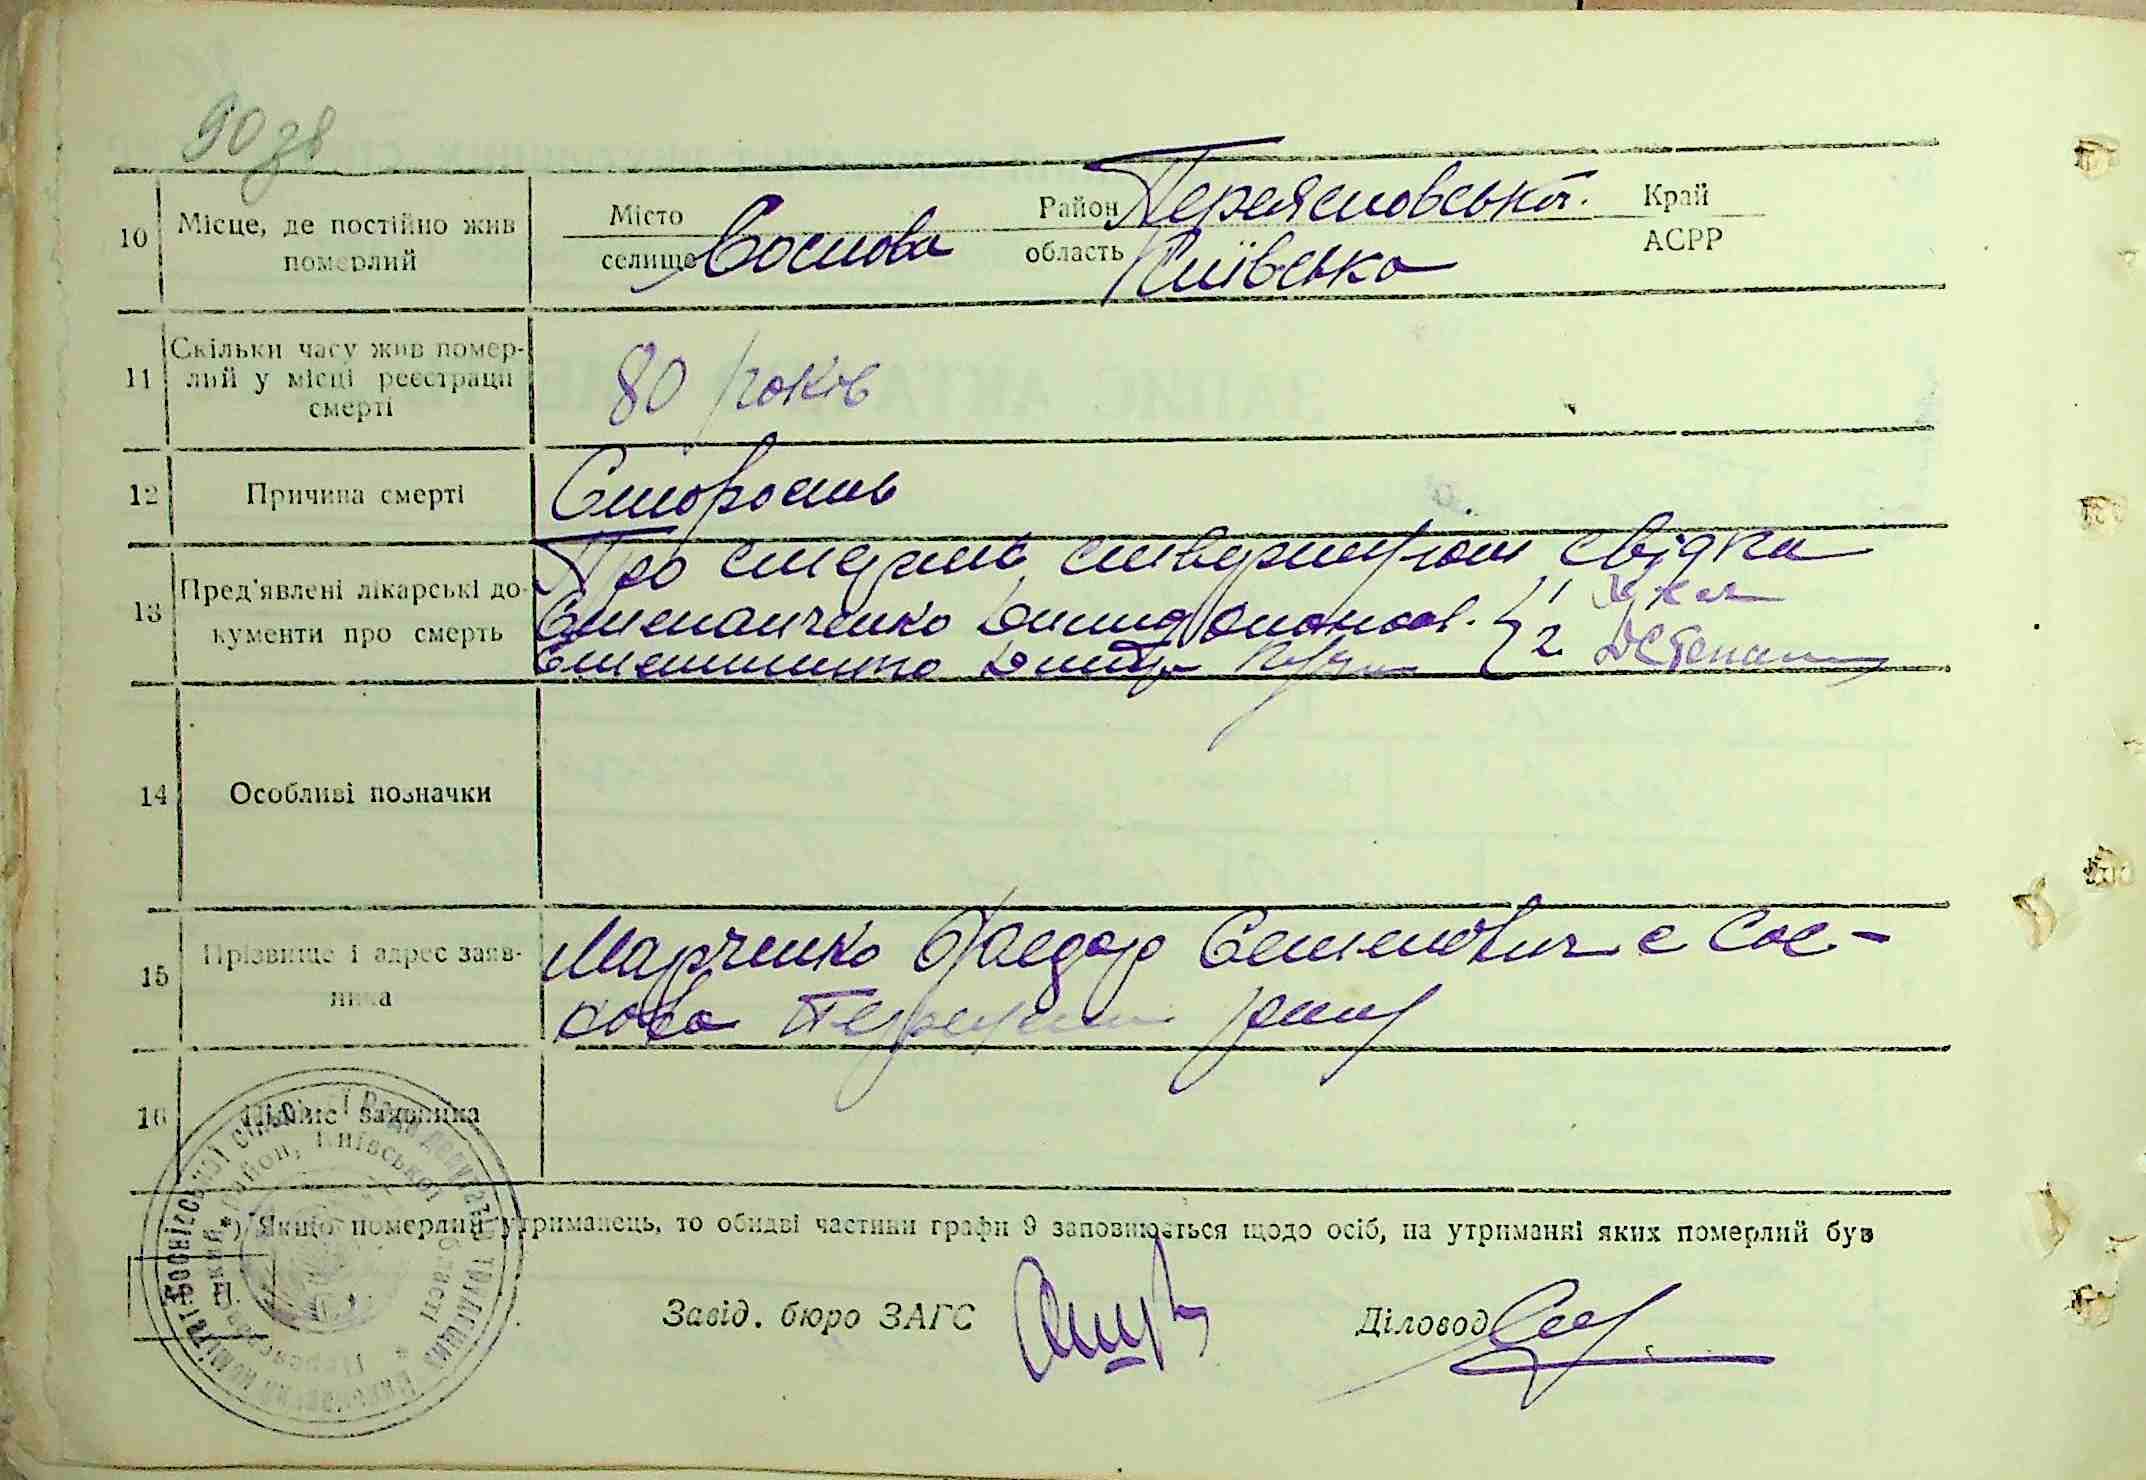 90 зв
10 Місце, де постійно жив померлий
Місто селище Соснова Район Переяславська Край
область Київська АСРР
11 Скільки часу жив помер-
лий у місці реєстрації
смерті
80 років
12 Причина смерті Старость
13 Пред'явлені лікарські до-
кументи про смерть
Про смерть стверджують свідки
Степанченко 1
Степаненко 2
14 Особливі позначки
15 Прізвище і адрес заяв-
ника
Марченко Федор Семенович с Сос-
нова
16 Підпис заявника
*) Якщо померлий утриманець, то обидві частини графи 9 заповнюється щодо осіб, на утриманні яких померлий був
М. П.
Завід. бюро ЗАГС Діловод
сільської Ради депутатів трудящих * Виконавчий комітет
район, Київської області